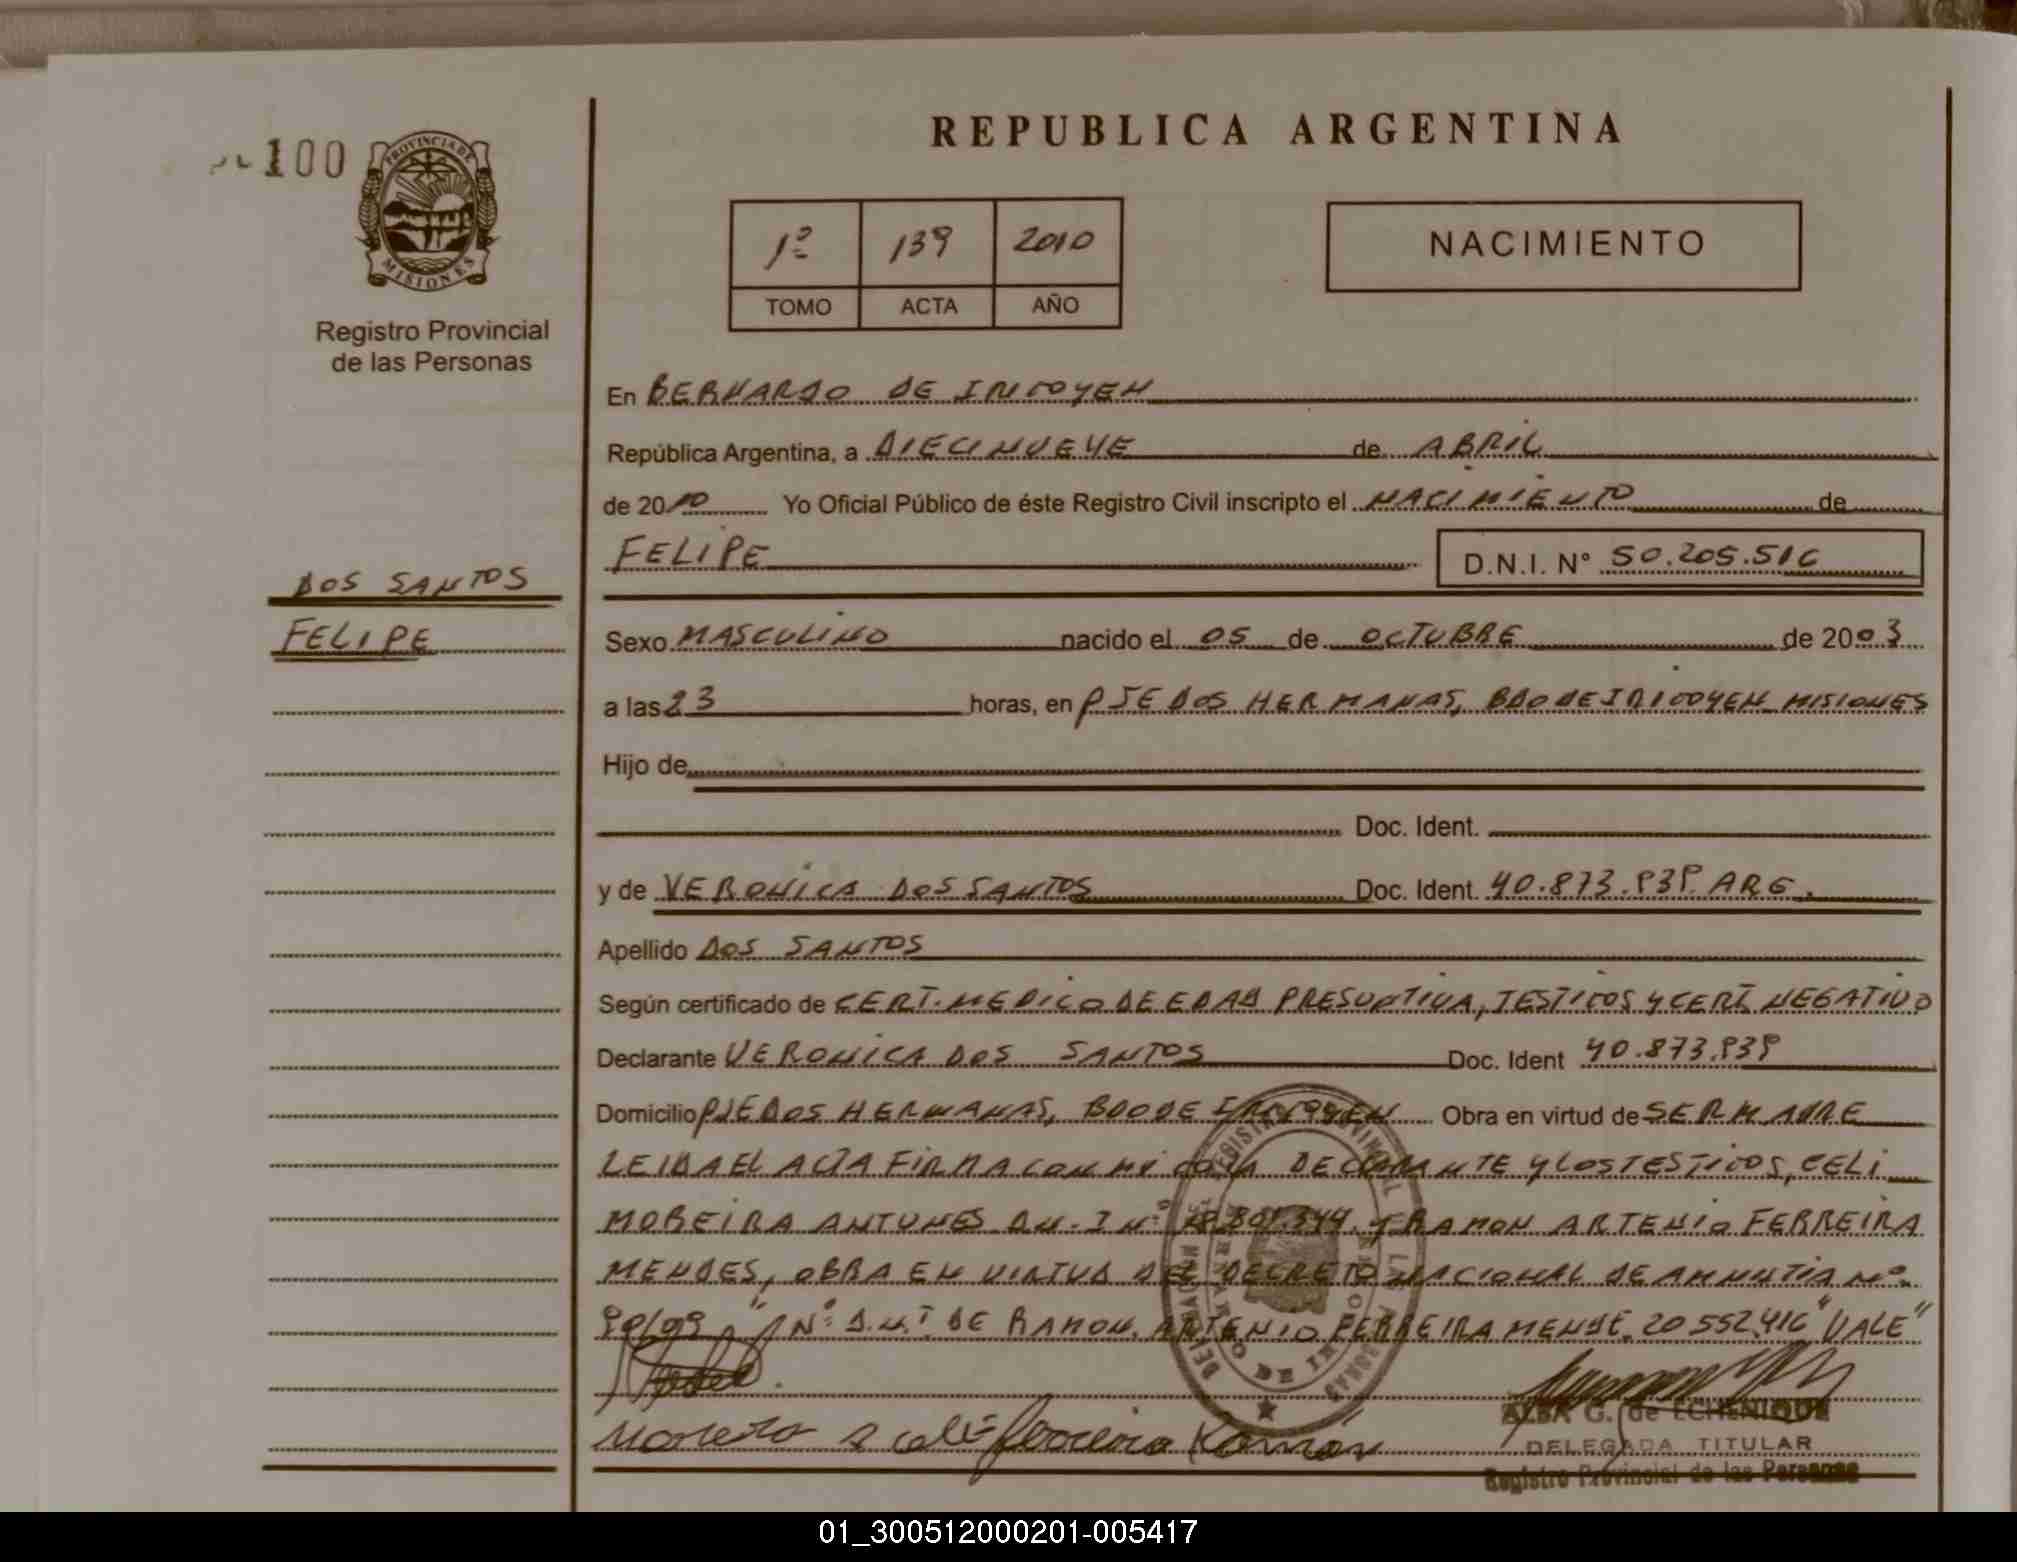 100
PROVINCIA DE
MISIONES
Registro Provincial
de las Personas
REPUBLICA ARGENTINA
1º 139 2010
TOMO ACTA AÑO
NACIMIENTO
En BERNARDO DE IRIGOYEN
República Argentina, a DIECINUEVE de ABRIL
de 2010 Yo Oficial Público de éste Registro Civil inscripto el NACIMIENTO de
FELIPE D.N.I. Nº 50.205.516
DOS SANTOS
FELIPE
Sexo MASCULINO nacido el 05 de OCTUBRE de 2003
a las 23 horas, en PJE DOS HERMANAS, BDO DE IRIGOYEN MISIONES
Hijo de
Doc. Ident.
y de VERONICA DOS SANTOS Doc. Ident. 40.873.939 ARG.
Apellido DOS SANTOS
Según certificado de CERT. MEDICO DE EDAD PRESUNTIVA, TESTIGOS Y CERT. NEGATIVO
Declarante VERONICA DOS SANTOS Doc. Ident 40.873.939
Domicilio PJE DOS HERMANAS, BDO DE IRIGOYEN Obra en virtud de SER MADRE
LEIDA EL ACTA FIRMA CONMIGO LA DECLARANTE Y LOS TESTIGOS, CELI
MOREIRA ANTUNES D.N.I Nº Y RAMON ARTENIO FERREIRA
MENDES, OBRA EN VIRTUD DEL DECRETO NACIONAL DE AMNISTIA Nº
90/09 "Nº D.N.I DE RAMON ARTENIO FERREIRA MENDE. 20.552.416" "VALE"
Ferreira Ramón
ALBA G. de ECHENIQUE
DELEGADA TITULAR
Registro Provincial de las Personas
01_300512000201-005417